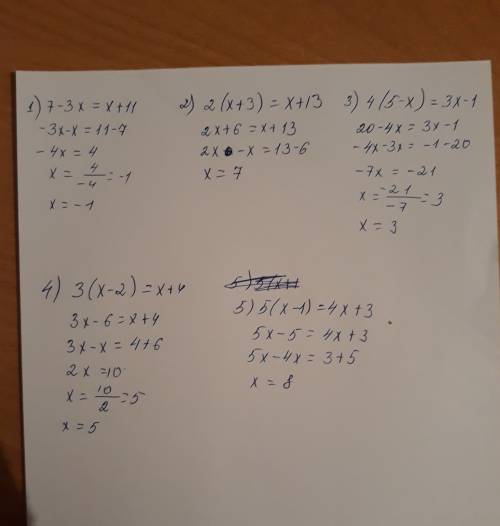 1) 7-3x = x+11
-3x-x = 11-7
-4x = 4
x = 4/-4 = -1
x = -1
2) 2(x+3) = x+13
2x+6 = x+13
2x -x = 13-6
x = 7
3) 4(5-x) = 3x-1
20-4x = 3x-1
-4x-3x = -1-20
-7x = -21
x = -21/-7 = 3
x = 3
4) 3(x-2) = x+4
3x-6 = x+4
3x-x = 4+6
2x = 10
x = 10/2 = 5
x = 5
5) 5(x-1) = 4x+3
5x-5 = 4x+3
5x-4x = 3+5
x = 8